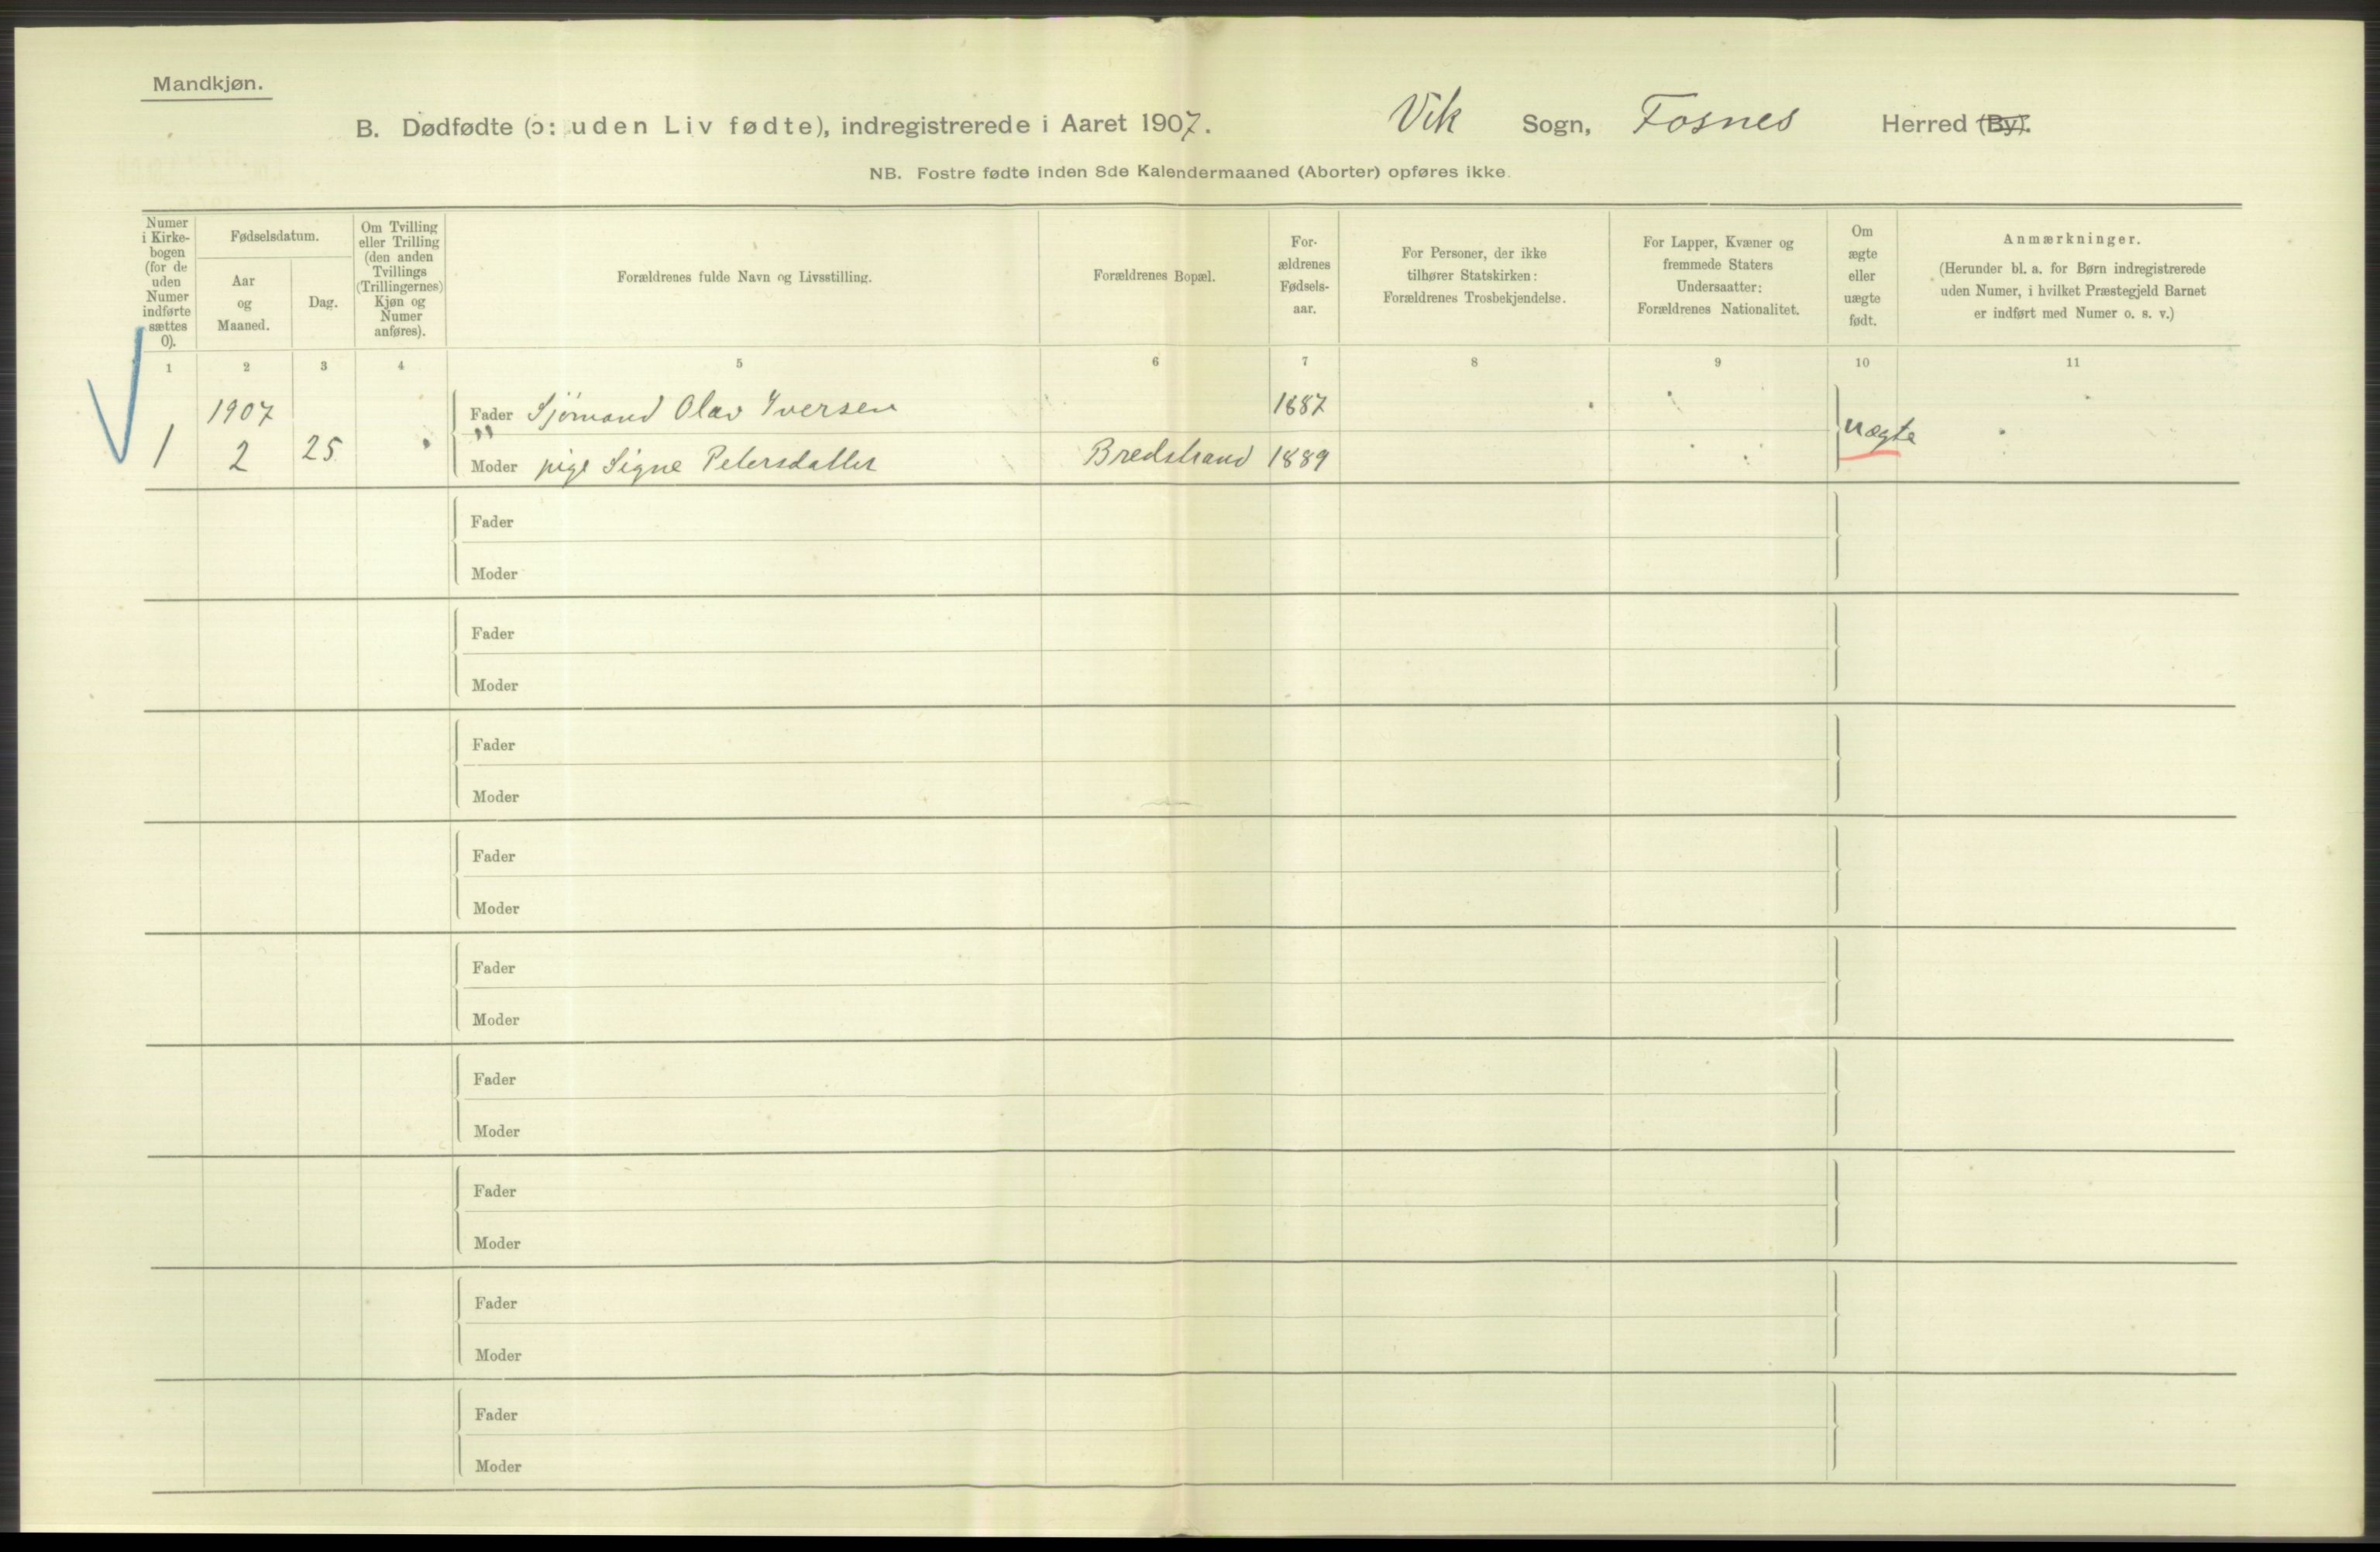 Mandkjøn.
B. Dødfødte (ɔ: uden Liv fødte), indregistrerede i Aaret 1907. Vik Sogn, Fosnes Herred (By).
NB. Fostre fødte inden 8de Kalendermaaned (Aborter) opføres ikke.
Numer
i Kirke-
bogen
(for de
uden
Numer
indførte
sættes
0).
Fødselsdatum.
Aar
og
Maaned.
Dag.
Om Tvilling
eller Trilling
(den anden
Tvillings
(Trillingernes)
Kjøn og
Numer
anføres).
Forældrenes fulde Navn og Livsstilling.
Forældrenes Bopæl.
For-
ældrenes
Fødsels-
aar.
For Personer, der ikke
tilhører Statskirken:
Forældrenes Trosbekjendelse.
For Lapper, Kvæner og
fremmede Staters
Undersaatter:
Forældrenes Nationalitet.
Om
ægte
eller
uægte
født.
Anmærkninger.
(Herunder bl. a. for Børn indregistrerede
uden Numer, i hvilket Præstegjeld Barnet
er indført med Numer o. s. v.)
1 2 3 4 5 6 7 8 9 10 11
1907 Fader Sjømand Olav Iversen 1887
1 2 25 " Moder pige Signe Petersdatter Bredstrand 1889 uægte
Fader
Moder
Fader
Moder
Fader
Moder
Fader
Moder
Fader
Moder
Fader
Moder
Fader
Moder
Fader
Moder
Fader
Moder